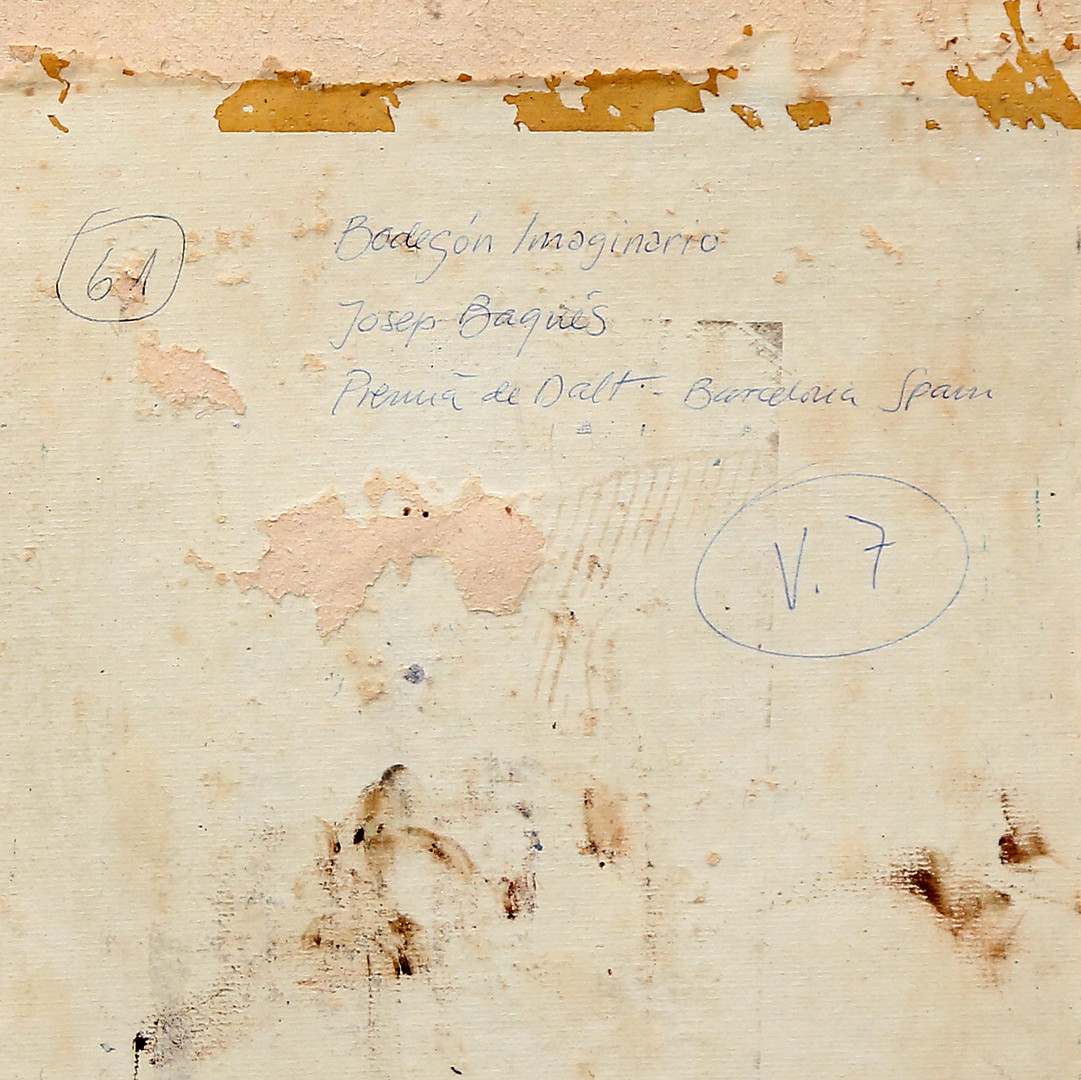 61
Bodegón Imaginario
Josep Baqués
Premiá de Dalt - Barcelona Spain
V. 7